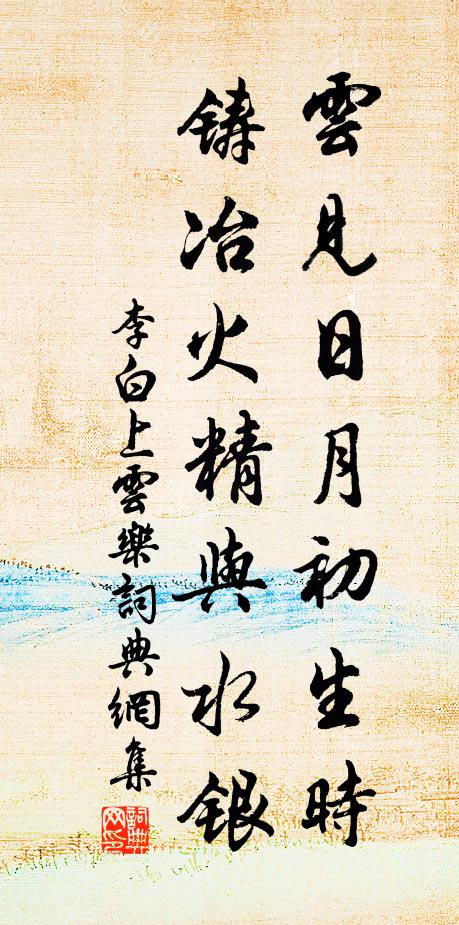 雲見日月初生時
鑄冶火精與水銀
李白上雲樂詞典網集
詞典網印